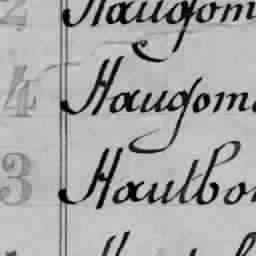 2 Haugom
4 Haugoma
3 Hautbo